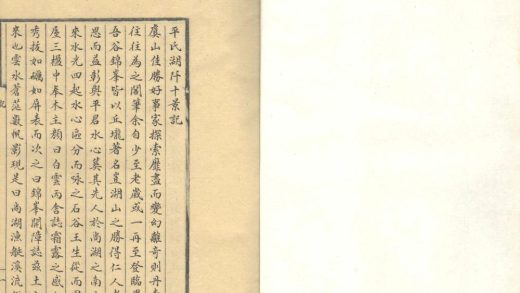 平氏湖阡十景記
虞山佳勝好事家探索靡盡而變幻離奇則丹
往往為之閣筆余自少至老歲或一再至登臨
吾谷錦峯皆以丘壠著名豈湖山之勝得仁人
思而益彰與平君水心奠其先人於尚湖之南
來水光四起水心區分而咏之石谷王生從而
屋三楹中奉木主顏曰白雲丙舍誌霜露之感
秀拔如礪如屏表而次之曰錦峯開障誌茲土
來也雲水蒼茫巖帆影現是曰尚湖漁艇溪流
記
一